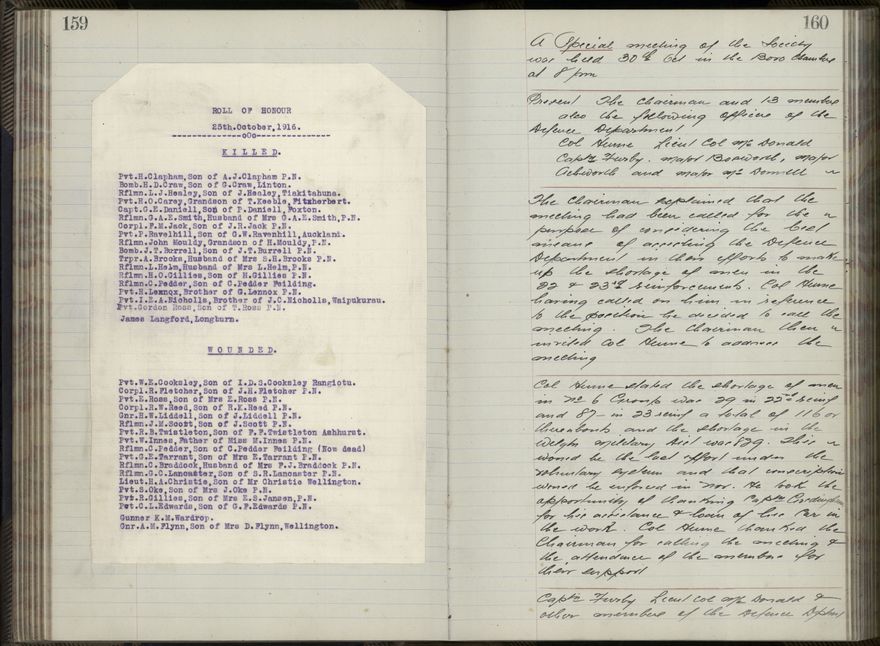 159
ROLL OF HONOUR
25th.October, 1916.
---------------oOo---------------
KILLED.
Pvt.H.Clapham,Son of A.J.Clapham P.N.
Bomb.H.D.Craw,Son of G.Craw,Linton.
Rflmn.L.J.Healey,Son of J.Healey,Tiakitahuna.
Pvt.H.O.Carey,Grandson of T.Keeble,Fitzherbert.
Capt.C.E.Daniell,Son of P.Daniell,Foxton.
Rflmn.G.A.E.Smith,Husband of Mrs G.A.E.Smith,P.N.
Corpl.F.M.Jack,Son of J.R.Jack P.N.
Pvt.P.Ravelhill,Son of G.W.Ravenhill,Auckland.
Rflmn.John Mouldy,Grandson of H.Mouldy,P.N.
Bomb.J.T.Burrell,Son of J.T.Burrell P.N.
Trpr.A.Brooks,Husband of Mrs S.H.Brooks P.N.
Rflmn.L.Helm,Husband of Mrs L.Helm,P.N.
Rflmn.H.O.Gillies,Son of H.Gillies P.N.
Rflmn.C.Pedder,Son of C.Pedder Feilding.
Pvt.H.Lennox,Brother of G.Lennox P.N.
Pvt.I.E.A.Nicholls,Brother of J.C.Nicholls,Waipukurau.
Pvt.Gordon Ross,Son of T.Ross P.N.
James Langford,Longburn.
WOUNDED.
Pvt.W.E.Cooksley,Son of I.D.S.Cooksley Rangiotu.
Corpl.R.Fletcher,Son of J.H.Fletcher P.N.
Pvt.E.Ross,Son of Mrs E.Ross P.N.
Corpl.R.W.Reed,Son of R.K.Reed P.N.
Gnr.H.W.Liddell,Son of J.Liddell P.N.
Rflmn.J.M.Scott,Son of J.Scott P.N.
Pvt.R.B.Twistleton,Son of F.F.Twistleton Ashhurst.
Pvt.W.Innes,Father of Miss M.Innes P.N.
Rflmn.C.Pedder,Son of C.Pedder Feilding (Now dead)
Pvt.G.E.Tarrant,Son of Mrs E.Tarrant P.N.
Rflmn.C.Braddock,Husband of Mrs F.J.Braddock P.N.
Rflmn.G.C.Lancaster,Son of S.R.Lancaster P.N.
Lieut.H.A.Christie,Son of Mr Christie Wellington.
Pvt.S.Oke,Son of Mrs J.Oke P.N.
Pvt.R.Gillies,Son of Mrs E.S.Jansen,P.N.
Pvt.C.L.Edwards,Son of G.F.Edwards P.N.
Gunner K.M.Wardrop.
Gnr.A.M.Flynn,Son of Mrs D.Flynn,Wellington.
160
A Special meeting of the Society
was held 30th Oct in the Boro Chambers
at 8 pm
Present The Chairman and 13 members
also the following officers of the
Defence Department
Col Hume Lieut Col McDonald
Captn Furby. Major Bosworth, Major
and Major McDonnell
The Chairman explained that the
meeting had been called for the
purpose of considering the best
means of assisting the Defence
Department in their efforts to make
up the shortage of men in the
22 & 23rd reinforcements. Col Hume
having called on him in reference
to the position he decided to call the
meeting. The Chairman then
invited Col Hume to address the
meeting
Col Hume stated the shortage of men
in No 6 Group was 29 in 22nd reinf
and 87 in 23 reinf a total of 116 or
thereabouts and the shortage in the
Welgtn Military Dist was 829. This
would be the last effort under the
voluntary system and that conscription
would be enforced in Nov. He took the
opportunity of thanking Captn
for his assistance & loan of his car in
the work. Col Hume thanked the
Chairman for calling the meeting &
the attendance of the members for
their support
Captn Furby Lieut Col McDonald &
other members of the Defence Deptmt